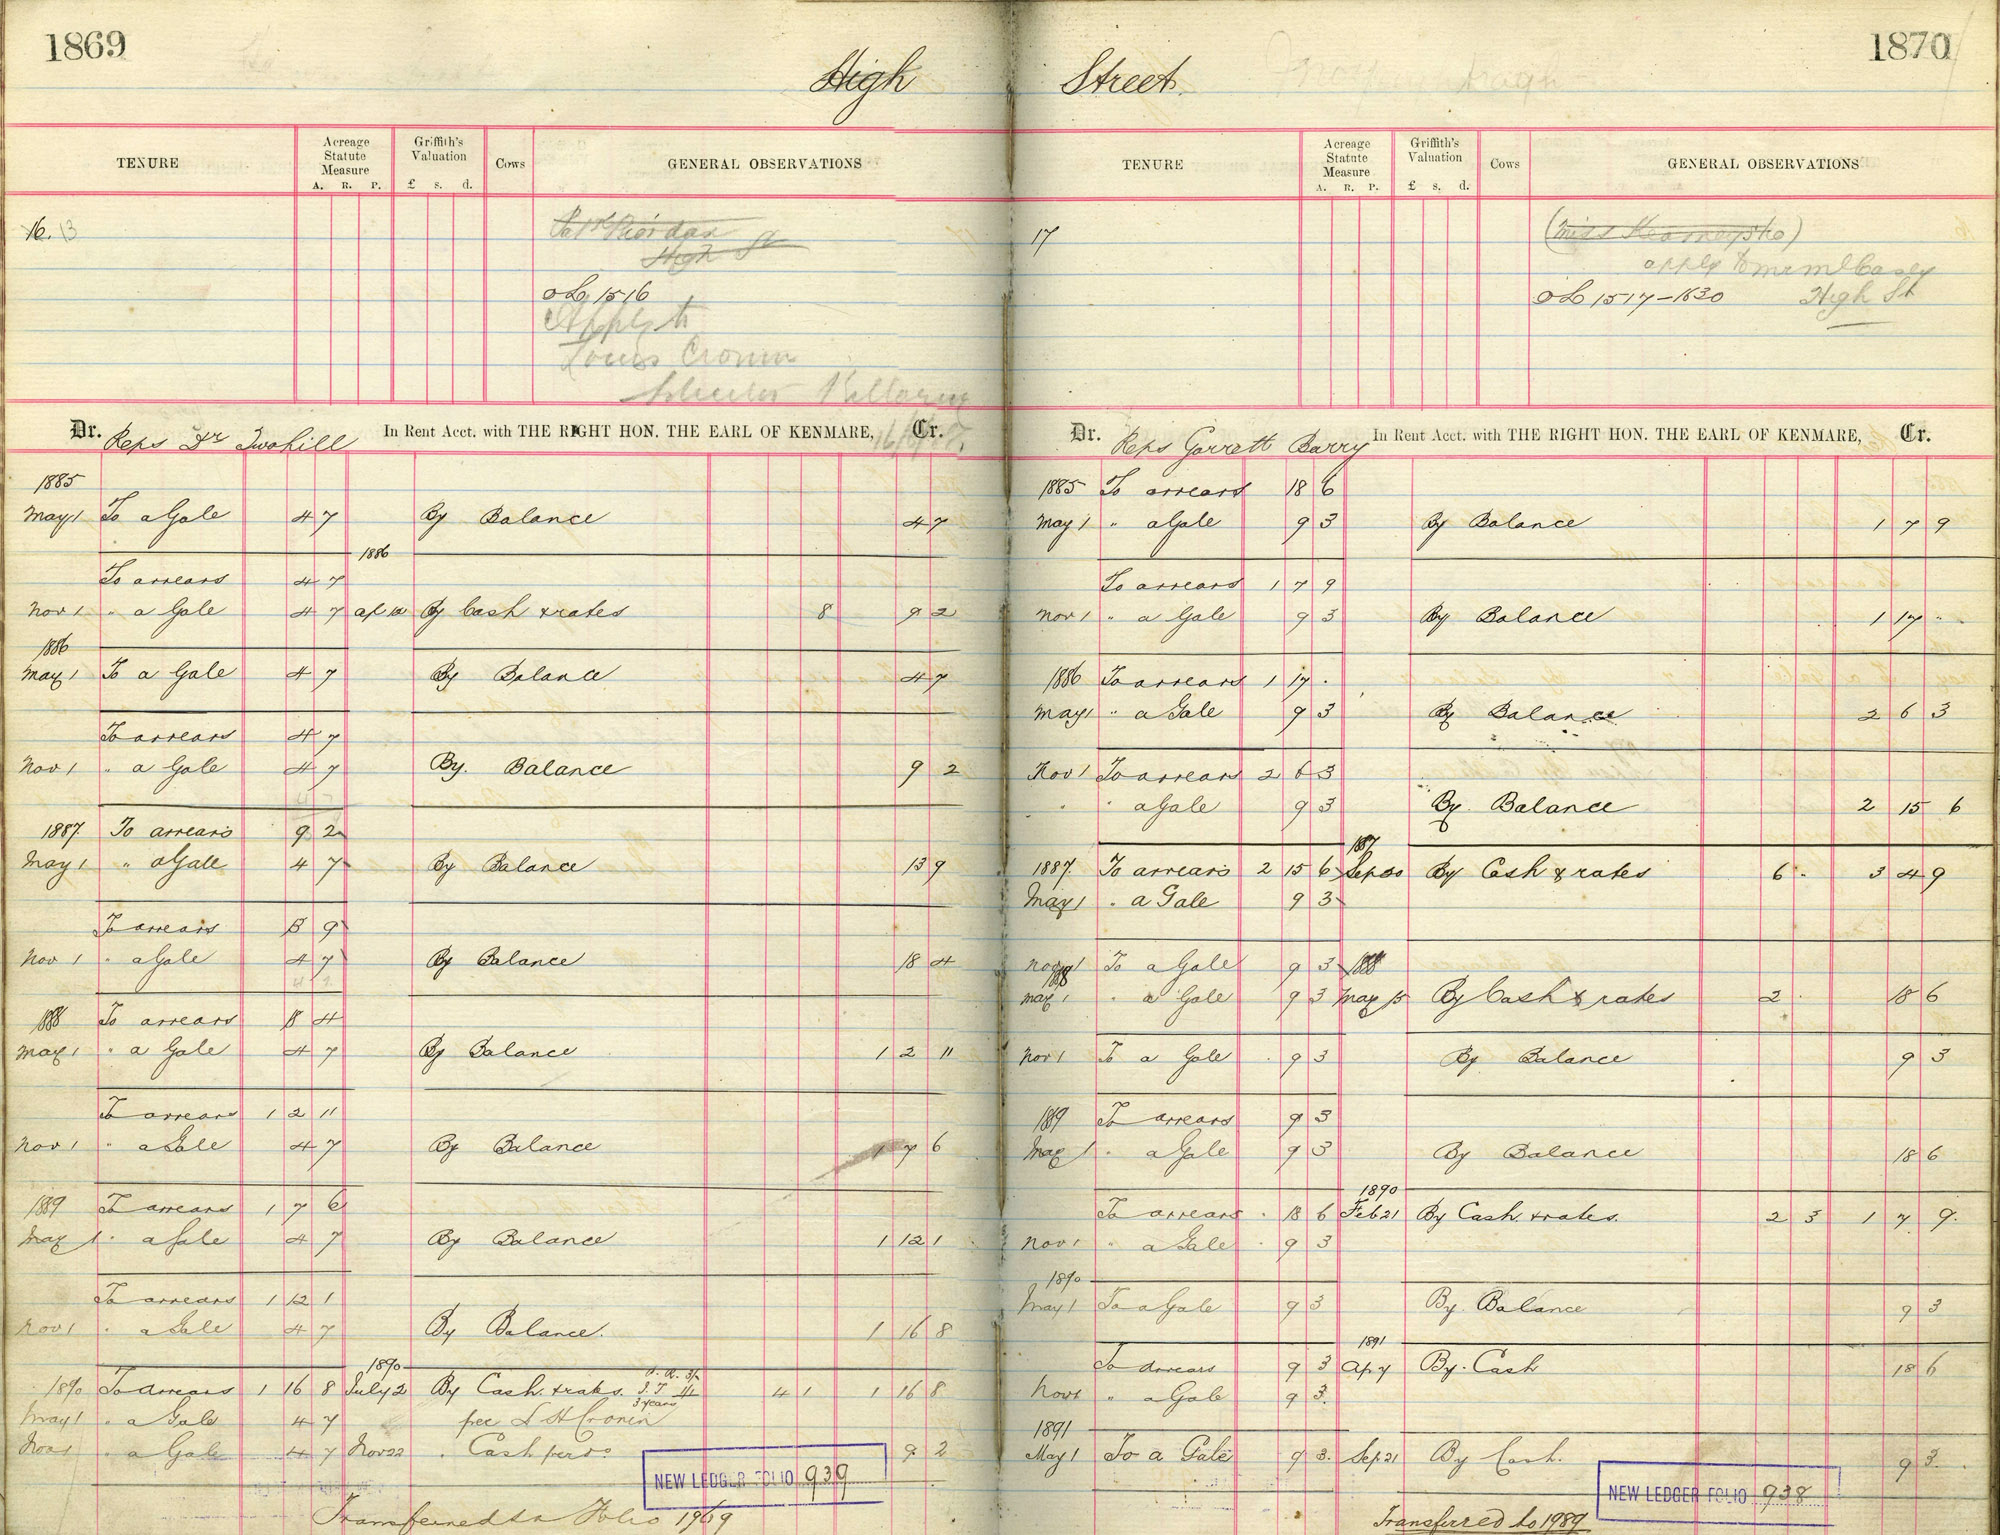 1869
High
TENURE
Acreage Statute Measure
A. R. P.
Griffith's Valuation
£ s. d.
Cows
GENERAL OBSERVATIONS
16. 13
Riordan
High St
O L 1516
Apply to
Louis Cronin
Solicitor
Dr. Reps Dr Twohill In Rent Acct. with THE RIGHT HON. THE EARL OF KENMARE, Cr.
1885
May 1 To a Gale 4 7 By Balance 4 7
1886
To arrears 4 7
Nov 1 " a Gale 4 7 By Cash & rates 8 9 2
1886
May 1 To a Gale 4 7 By Balance 4 7
To arrears 4 7
Nov 1 " a Gale 4 7 By. Balance 9 2
1887. To arrears 9 2
May 1 " a Gale 4 7 By Balance 13 9
To arrears 13 9
Nov 1 " a Gale 4 7 By Balance 18 4
1888 To arrears 18 4
May 1 " a Gale 4 7 By Balance 1 2 11
To arrears 1 2 11
Nov 1 " a Gale 4 7 By Balance 1 7 6
1889 To arrears 1 7 6
May 1 " a Gale 4 7 By Balance 1 12 1
To arrears 1 12 1
Nov 1 " a Gale 4 7 By Balance. 1 16 8
1890
1890 To arrears 1 16 8 July 2 By Cash & rates 4 1 1 16 8
3 years
May 1 " a Gale 4 7 per L H Cronin
Nov 1 " a Gale 4 7 Nov 22 " Cash per do. 9 2
NEW LEDGER FOLIO 939
Transferred to Folio 1969
1870
Street.
TENURE
Acreage Statute Measure
A. R. P.
Griffith's Valuation
£ s. d.
Cows
GENERAL OBSERVATIONS
17
(Miss
apply to
O L 1517-1630 High St
Dr. Reps Garrett Barry In Rent Acct. with THE RIGHT HON. THE EARL OF KENMARE, Cr.
1885 To arrears 18 6
May 1 " a Gale 9 3 By Balance 1 7 9
To arrears 1 7 9
Nov 1 " a Gale 9 3 By Balance 1 17 "
1886 To arrears 1 17 .
May 1 " a Gale 9 3 By Balance 2 6 3
Nov 1 To arrears 2 6 3
" " a Gale 9 3 By. Balance 2 15 6
1887
1887. To arrears 2 15 6 By Cash & rates 6 . 3 4 9
May 1 " a Gale 9 3
Nov 1 To a Gale 9 3 1888
1888
May 1 " a Gale 9 3 May 15 By Cash & rates 2 . 18 6
Nov 1 To a Gale 9 3 By Balance 9 3
1889 To arrears 9 3
May 1 " a Gale 9 3 By Balance 18 6
1890
To arrears 18 6 Feb 21 By Cash & rates. 2 3 1 7 9.
Nov 1 " a Gale 9 3
1890
May 1 To a Gale 9 3 By. Balance 9 3
1891
To arrears 9 3 Ap 7 By. Cash 18 6
Nov 1 " a Gale 9 3.
1891
May 1 To a Gale 9 3. Sep. 21 By Cash. 9 3.
NEW LEDGER FOLIO 938
Transferred to 1989